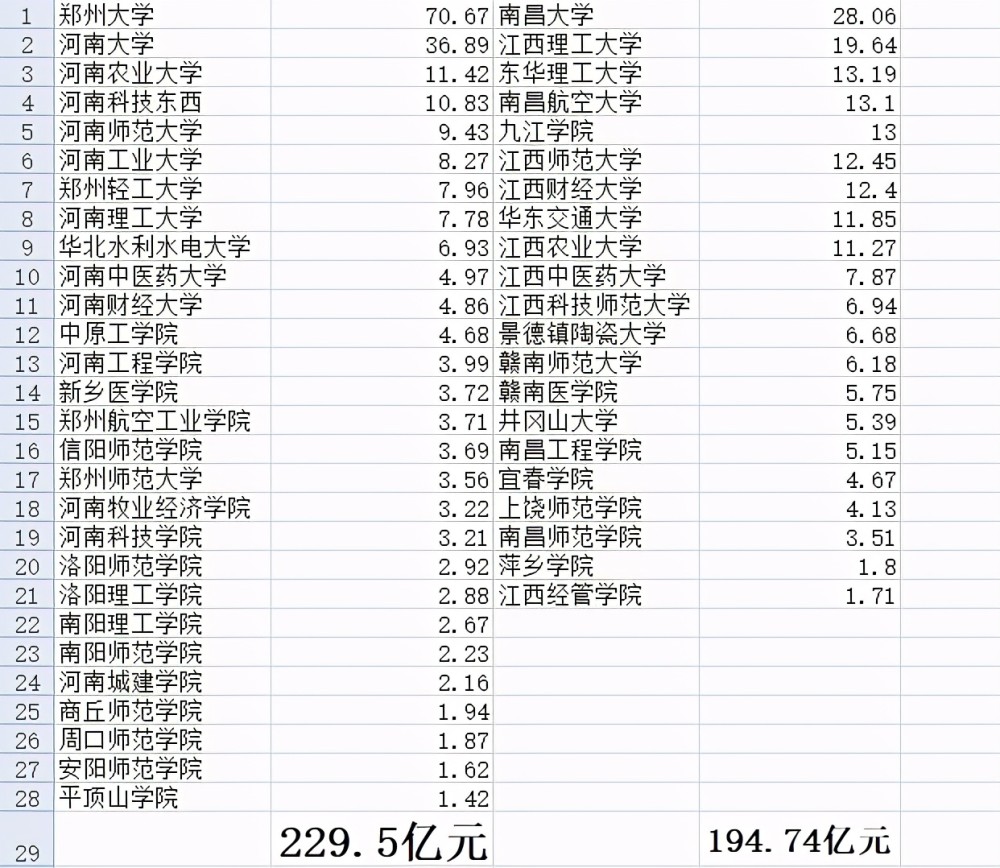 1 郑州大学 70.67 南昌大学 28.06
2 河南大学 36.89 江西理工大学 19.64
3 河南农业大学 11.42 东华理工大学 13.19
4 河南科技东西 10.83 南昌航空大学 13.1
5 河南师范大学 9.43 九江学院 13
6 河南工业大学 8.27 江西师范大学 12.45
7 郑州轻工大学 7.96 江西财经大学 12.4
8 河南理工大学 7.78 华东交通大学 11.85
9 华北水利水电大学 6.93 江西农业大学 11.27
10 河南中医药大学 4.97 江西中医药大学 7.87
11 河南财经大学 4.86 江西科技师范大学 6.94
12 中原工学院 4.68 景德镇陶瓷大学 6.68
13 河南工程学院 3.99 赣南师范大学 6.18
14 新乡医学院 3.72 赣南医学院 5.75
15 郑州航空工业学院 3.71 井冈山大学 5.39
16 信阳师范学院 3.69 南昌工程学院 5.15
17 郑州师范大学 3.56 宜春学院 4.67
18 河南牧业经济学院 3.22 上饶师范学院 4.13
19 河南科技学院 3.21 南昌师范学院 3.51
20 洛阳师范学院 2.92 萍乡学院 1.8
21 洛阳理工学院 2.88 江西经管学院 1.71
22 南阳理工学院 2.67
23 南阳师范学院 2.23
24 河南城建学院 2.16
25 商丘师范学院 1.94
26 周口师范学院 1.87
27 安阳师范学院 1.62
28 平顶山学院 1.42
29 229.5亿元 194.74亿元